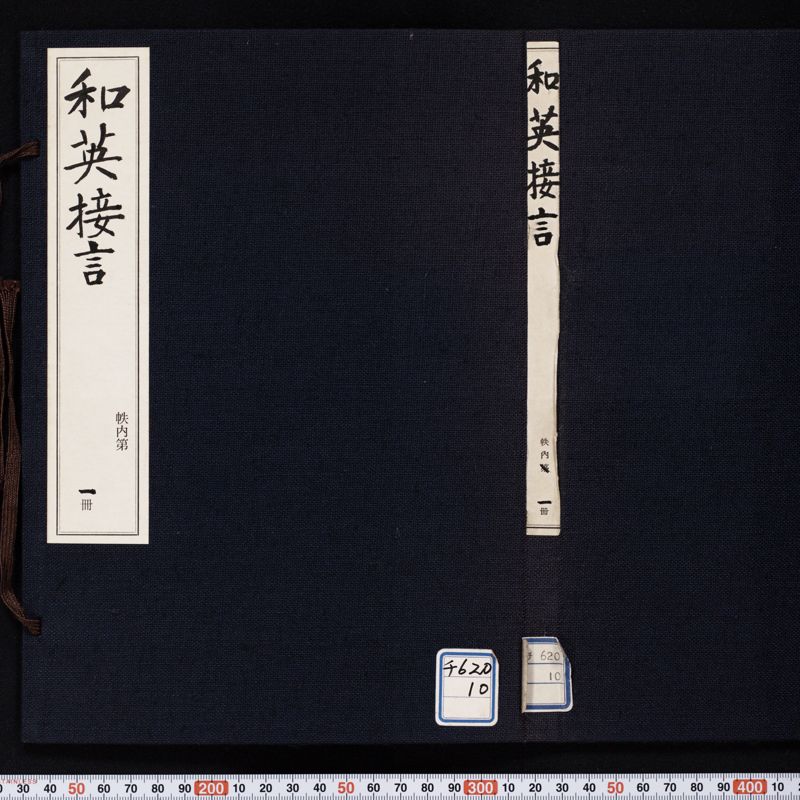 和英接言
帙内第
一冊
和英接言
帙内
一冊
チ620
10
チ 620
10
20 30 40 50 60 70 80 90 200 10 20 30 40 50 60 70 80 90 300 10 20 30 40 50 60 70 80 90 400 10